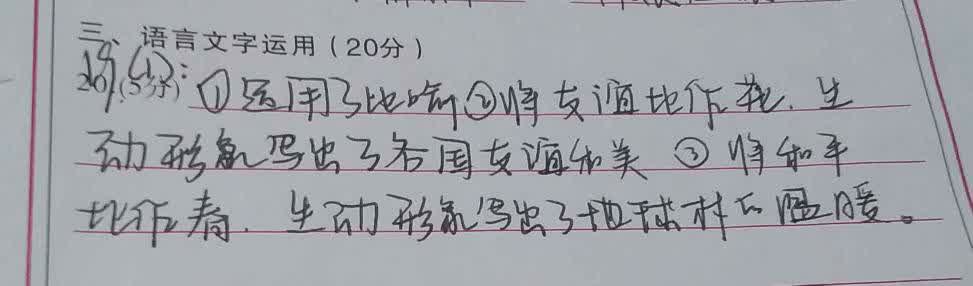 三、语言文字运用（20分）
20.(5分)：①运用了比喻②将友谊比作花，生
动形象写出了各国友谊和美 ③ 将和平
比作春，生动形象写出了地球村的温暖。